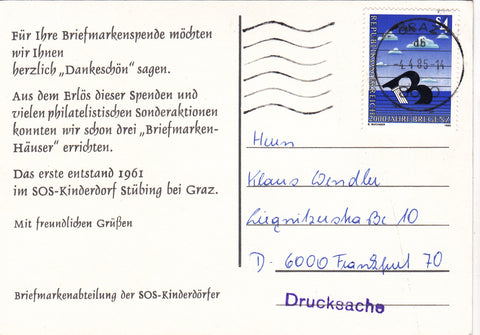 Für Ihre Briefmarkenspende möchten
wir Ihnen
herzlich „Dankeschön" sagen.
Aus dem Erlös dieser Spenden und
vielen philatelistischen Sonderaktionen
konnten wir schon drei „Briefmarken-
Häuser" errichten.
Das erste entstand 1961
im SOS-Kinderdorf Stübing bei Graz.
Mit freundlichen Grüßen
Briefmarkenabteilung der SOS-Kinderdörfer
S4
REPUBLIK
2000 JAHRE BREGENZ
GRAZ
-4.4.85-14
Herrn
Klaus Wendler
Liegnitzerstraße 10
D-6000 Frankfurt 70
Drucksache